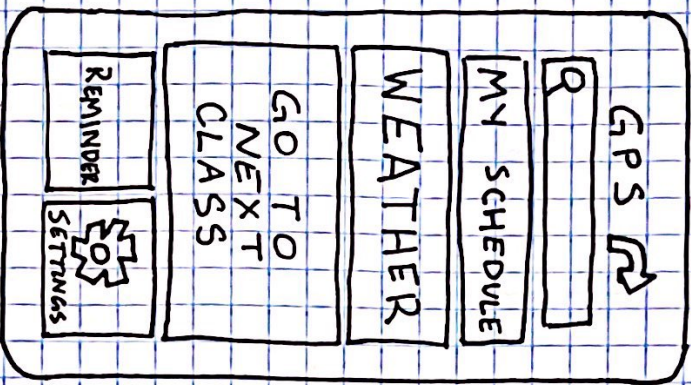 GPS
MY SCHEDULE
WEATHER
GO TO
NEXT
CLASS
REMINDER
SETTINGS